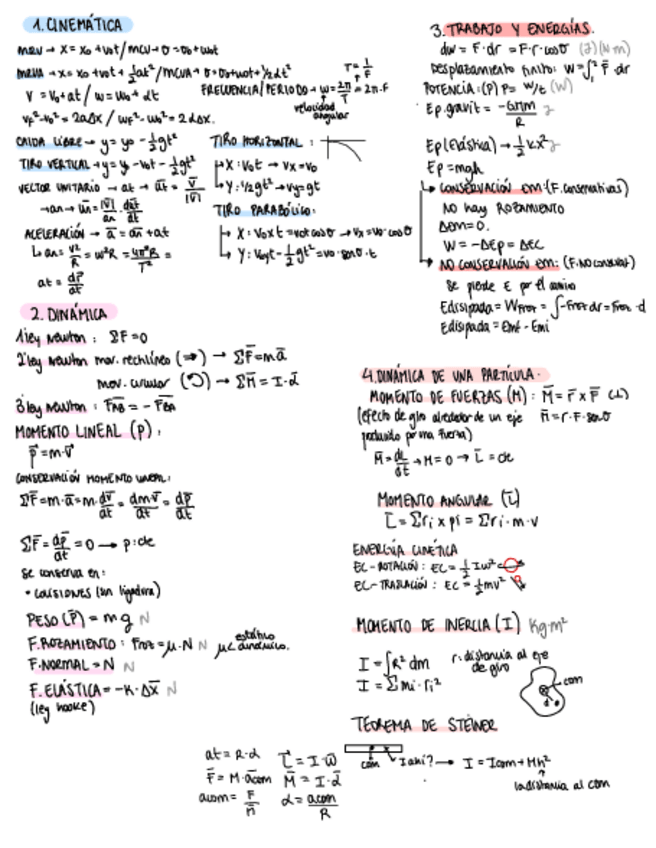 1. CINEMÁTICA
MRU → X = X₀ + V₀t / MCU → θ = θ₀ + ω₀t
MRUA → X = X₀ + V₀t + ½at² / MCUA → θ = θ₀ + ω₀t + ½αt²
V = V₀ + at / ω = ω₀ + αt
FRECUENCIA / PERIODO → ω = 2π/T = 2π·F
T = 1/F
velocidad angular
V_F² - V₀² = 2aΔX / ω_F² - ω₀² = 2αΔx.
CAIDA LIBRE → y = y₀ - ½gt²
TIRO VERTICAL → y = y₀ - V₀t - ½gt²
VECTOR UNITARIO → at → u̅t = V̅/|V̅|
→ an → u̅n = |V̅|/an · du̅t/dt
ACELERACIÓN → a̅ = a̅n + at
↳ an = V²/R = ω²R = 4π²R/T² =
at = dP̅/dt
TIRO HORIZONTAL:
↳ X: V₀t → Vx = V₀
↳ Y: ½gt² → Vy = gt
TIRO PARABÓLICO:
↳ X: V₀xt = V₀t cosθ → Vx = V₀·cosθ
↳ Y: V₀yt - ½gt² = V₀·senθ·t
2. DINÁMICA
1ª ley Newton: ΣF = 0
2ª ley Newton mov. rectilíneo (⇒) → ΣF̅ = m a̅
mov. circular (↻) → ΣM̅ = I·α̅
3ª ley Newton: F̅AB = - F̅BA
MOMENTO LINEAL (P):
P̅ = m·V̅
CONSERVACIÓN MOMENTO LINEAL:
ΣF̅ = m·a̅ = m·dV̅/dt = dm·V̅/dt = dP̅/dt
ΣF̅ = dP̅/dt = 0 → p: cte
Se conserva en:
• COLISIONES (sin ligadura)
PESO (P̅) = m g N
F. ROZAMIENTO: Froz = μ·N N μ< estático dinámico.
F. NORMAL = N N
F. ELÁSTICA = -K·Δx̅ N
(ley hooke)
3. TRABAJO Y ENERGÍAS.
dw = F·dr = F·r·cosθ (J) (N·m)
Desplazamiento finito: W = ∫₁² F̅·dr
POTENCIA: (P) P = W/t (W)
Ep. gravit = -GMm/R J
Ep (Elástica) → ½kx² J
Ep = mgh
↳ CONSERVACIÓN EM: (F. conservativas)
NO hay ROZAMIENTO
ΔEm = 0.
W = -ΔEp = ΔEC
↳ NO CONSERVACIÓN EM: (F. NO conservat)
Se pierde E por el camino
Edisipada = WFroz = ∫-Froz dr = Froz·d
Edisipada = Emf - Emi
4. DINÁMICA DE UNA PARTÍCULA.
MOMENTO DE FUERZAS (M): M̅ = r̅ x F̅ (⊥)
(efecto de giro alrededor de un eje M̅ = r·F·senθ
producido por una fuerza)
M̅ = dL/dt → M = 0 → L̅ = cte
MOMENTO ANGULAR (L̅)
L̅ = Σri x pi = Σri·m·v
ENERGÍA CINÉTICA
EC - ROTACIÓN: EC = ½Iω²
EC - TRASLACIÓN: EC = ½mv²
MOMENTO DE INERCIA (I) Kg·m²
I = ∫R² dm
r: distancia al eje de giro
I = Σmi·ri²
com
d
TEOREMA DE STEINER
com
I ahí? → I = Icom + Mh²
la distancia al com
at = R·α
L̅ = I·ω̅
F̅ = M·a̅com
M̅ = I·α̅
acom = F/m
α = acom/R